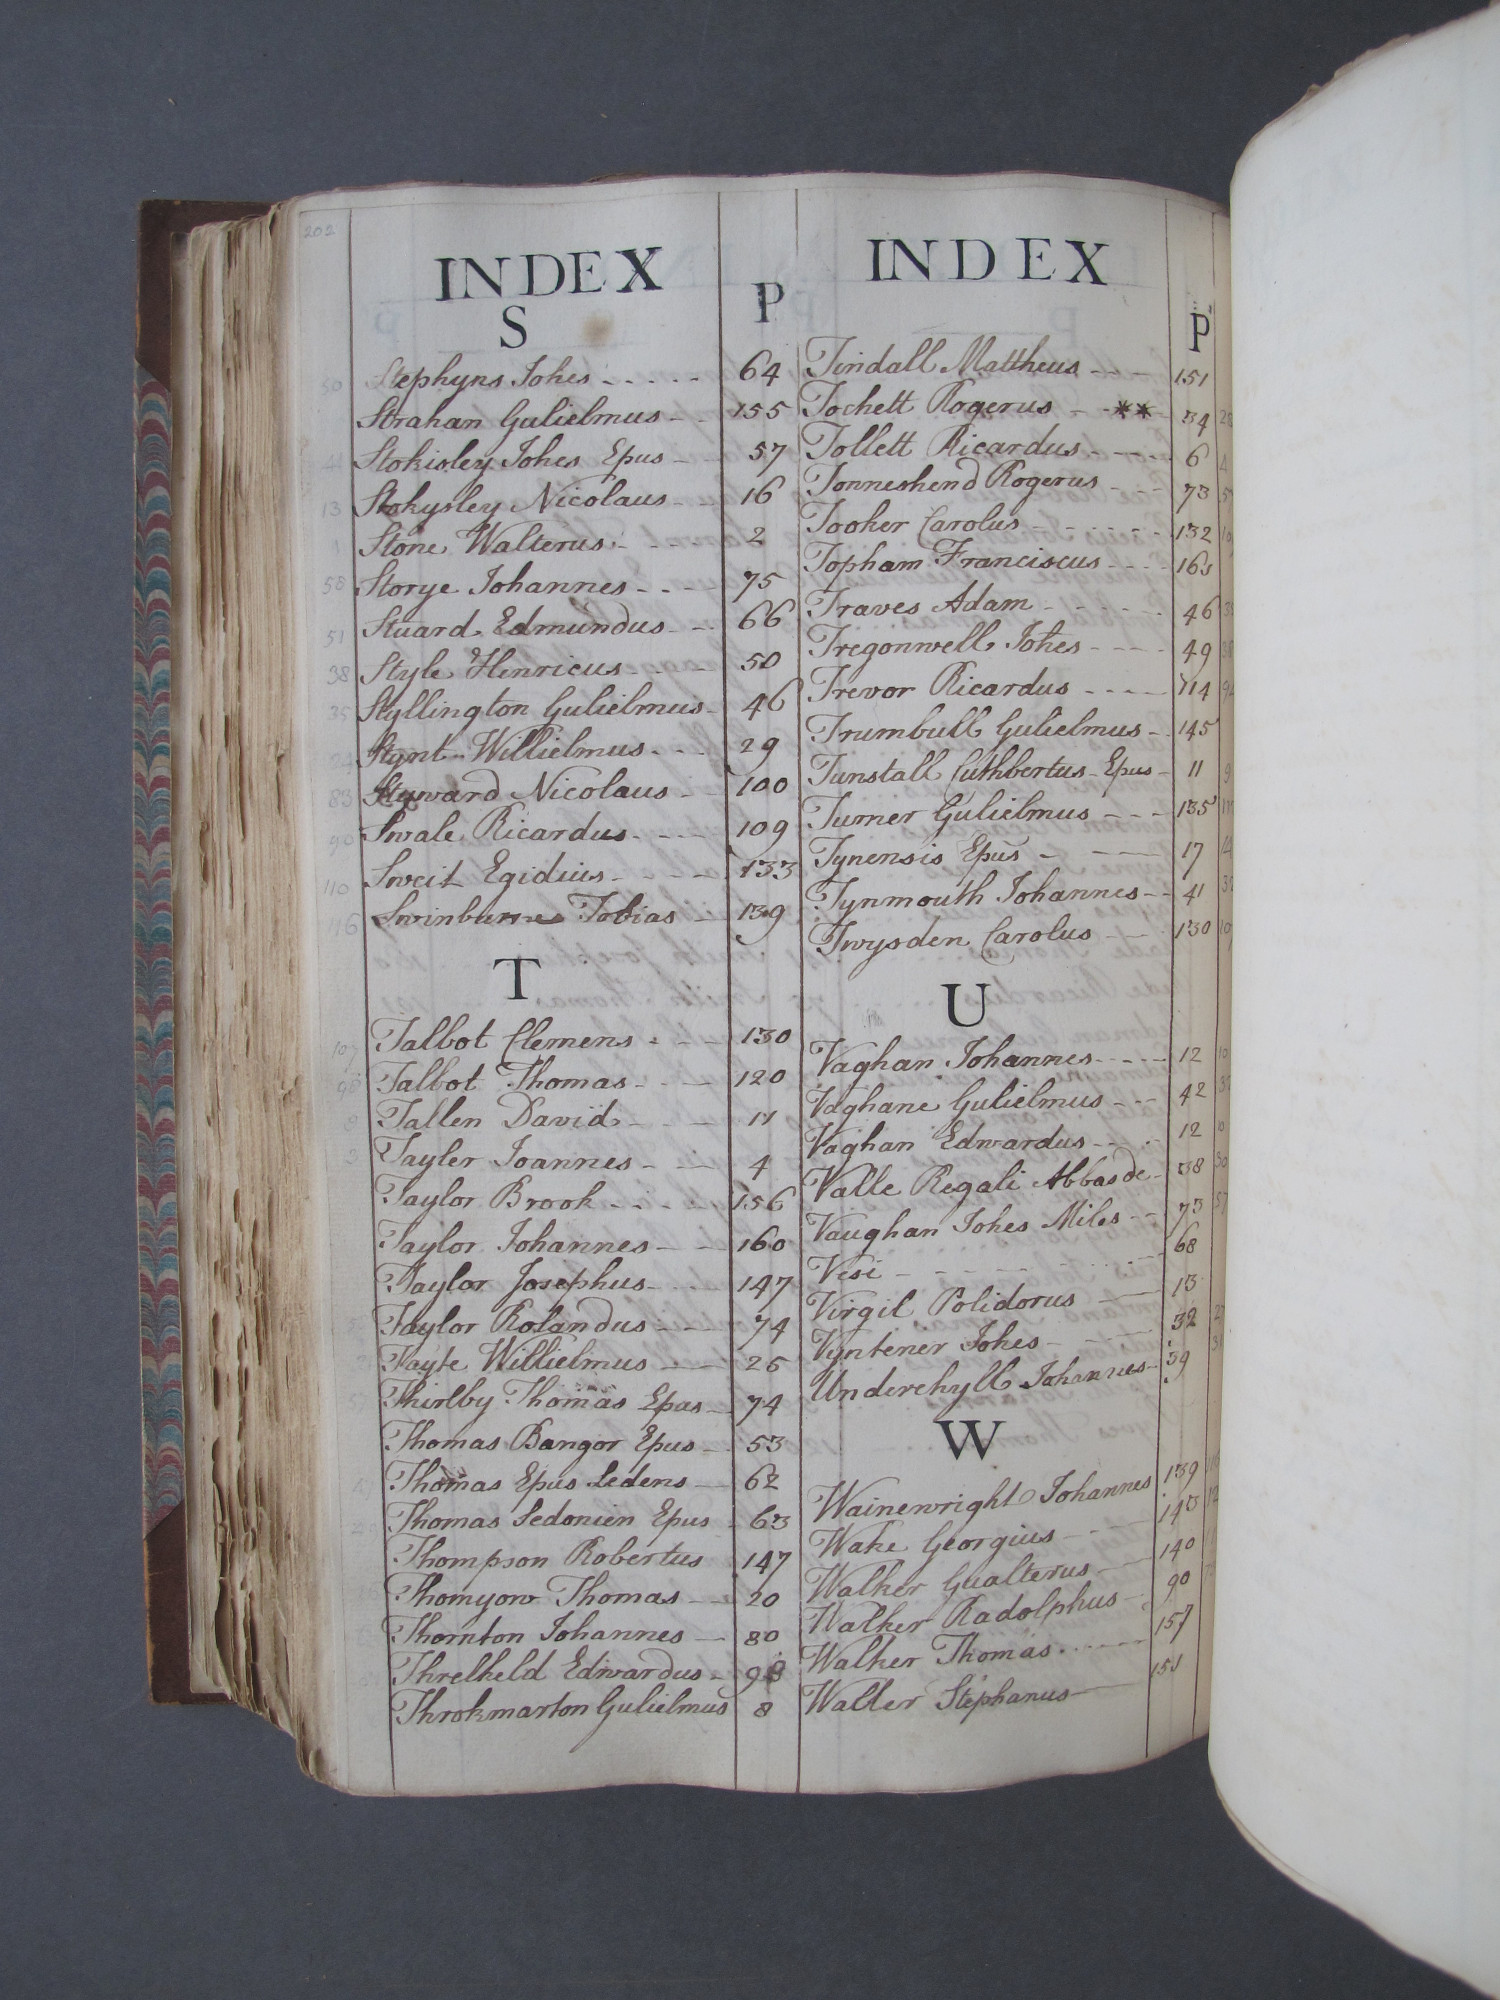 202
INDEX
S
P
50 Stephyns Johes - - - - - 64
Strahan Gulielmus - - 155
Stokisley Johes Epus - 57
13 Stokysley Nicolaus - - 16
1 Stone Walterus - - - 2
58 Storye Johannes - - - - 75
51 Stuard Edmundus - - 66
38 Style Henricus - - - 50
35 Styllington Gulielmus - 46
24 Stynt Willielmus - - - 29
83 Steward Nicolaus - - 100
90 Swale Ricardus - - - 109
110 Sweit Egidius - - - - 133
116 Swinburne Tobias - 139
T
107 Talbot Clemens - - - 130
98 Talbot Thomas - - - 120
Tallen David - - - 11
Tayler Joannes - - - 4
Taylor Brook - - - - 156
Taylor Johannes - - 160
Taylor Josephus - - - 147
Taylor Rolandus - - 74
Tayte Willielmus - - 25
Thirlby Thomas Epus - 74
Thomas Bangor Epus - 53
Thomas Epus Ledens - 62
Thomas Sedonien Epus - 63
Thompson Robertus 147
Thomyow Thomas - - 20
Thornton Johannes - 80
Threlkeld Edwardus - 98
Throkmarton Gulielmus 8
INDEX
P
Tindall Mattheus - - - 151
Tochett Rogerus - - ** - 34
Tollett Ricardus - - - - 6
Tonneshend Rogerus - - - 73
Tooker Carolus - - - - - - 132
Topham Franciscus - - - - 163
Traves Adam - - - - - - 46
Tregonwell Johes - - - - 49
Trevor Ricardus - - - - 114
Trumbull Gulielmus - - 145
Tunstall Cuthbertus - Epus - 11
Turner Gulielmus - - - 135
Tynensis Epus - - 17
Tynmouth Johannes - - 41
Twysden Carolus - - 130
U
Vaghan Johannes - - - - 12
Vaghane Gulielmus - - - 42
Vaghan Edwardus - - - - 12
Valle Regali Abbas de - 38
Vaughan Johes Miles - - 73
Vesi - - - - - - - 68
Virgil Polidorus - 13
Vyntener Johes - - 32
Underhyll Johannes - - 39
W
Wainewright Johannes 139
Wake Georgius - - - 143
Walker Gualterus - - 140
Walker Radolphus - 90
Walker Thomas - - - - - 157
Waller Stephanus - 151